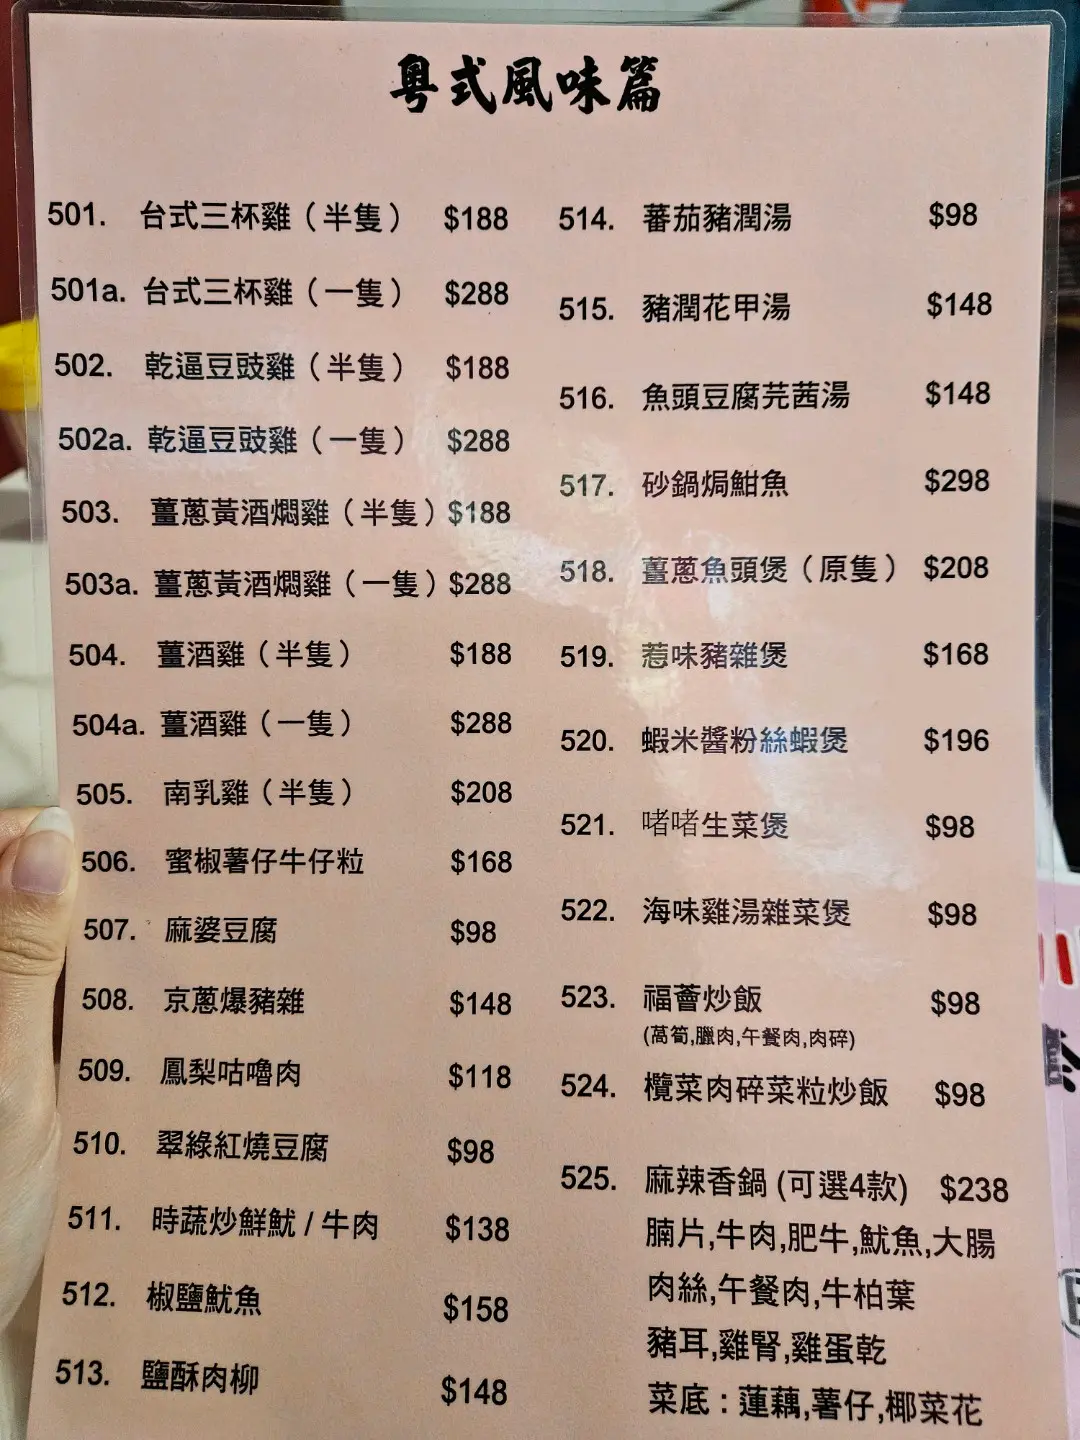 粵式風味篇
501. 台式三杯雞（半隻） $188
501a. 台式三杯雞（一隻） $288
502. 乾逼豆豉雞（半隻） $188
502a. 乾逼豆豉雞（一隻） $288
503. 薑蔥黃酒燜雞（半隻） $188
503a. 薑蔥黃酒燜雞（一隻） $288
504. 薑酒雞（半隻） $188
504a. 薑酒雞（一隻） $288
505. 南乳雞（半隻） $208
506. 蜜椒薯仔牛仔粒 $168
507. 麻婆豆腐 $98
508. 京蔥爆豬雜 $148
509. 鳳梨咕嚕肉 $118
510. 翠綠紅燒豆腐 $98
511. 時蔬炒鮮魷 / 牛肉 $138
512. 椒鹽魷魚 $158
513. 鹽酥肉柳 $148
514. 蕃茄豬潤湯 $98
515. 豬潤花甲湯 $148
516. 魚頭豆腐芫茜湯 $148
517. 砂鍋焗鮒魚 $298
518. 薑蔥魚頭煲（原隻） $208
519. 惹味豬雜煲 $168
520. 蝦米醬粉絲蝦煲 $196
521. 啫啫生菜煲 $98
522. 海味雞湯雜菜煲 $98
523. 福薈炒飯 $98
(萵筍,臘肉,午餐肉,肉碎)
524. 欖菜肉碎菜粒炒飯 $98
525. 麻辣香鍋 (可選4款) $238
腩片,牛肉,肥牛,魷魚,大腸
肉絲,午餐肉,牛柏葉
豬耳,雞腎,雞蛋乾
菜底：蓮藕,薯仔,椰菜花